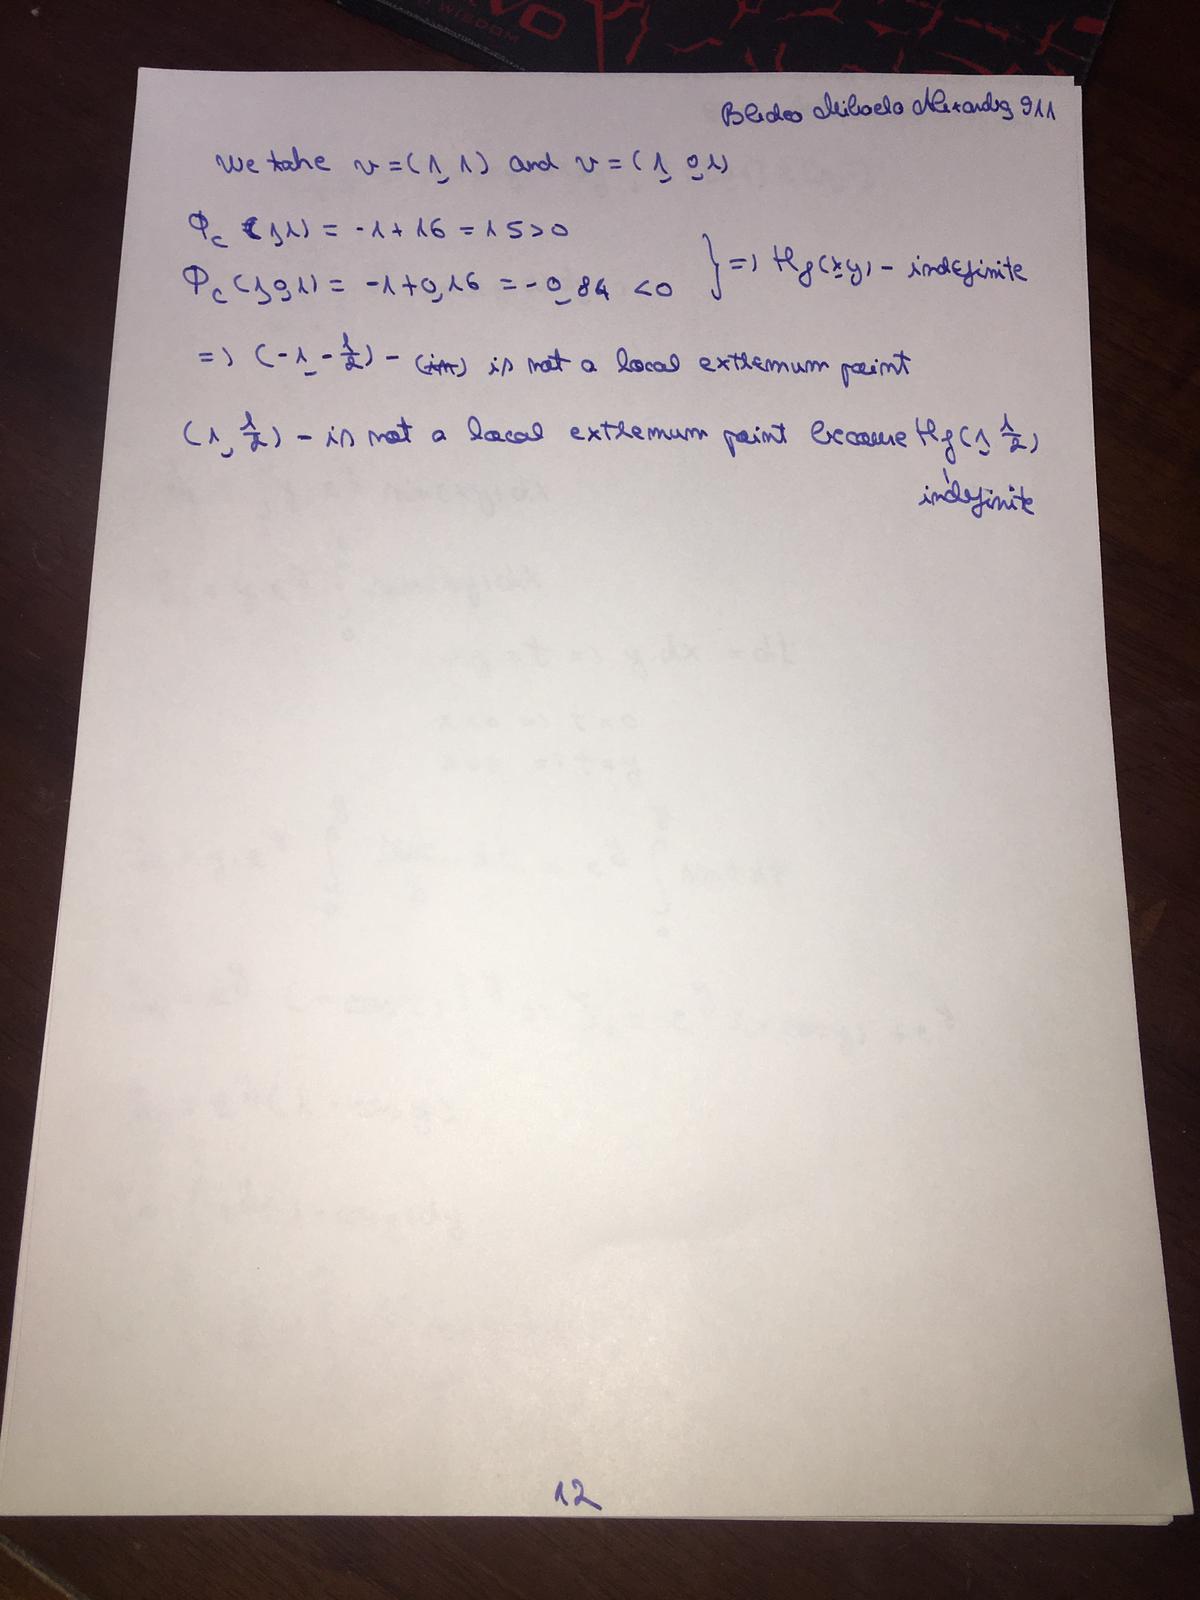 VO
WISDOM
Mihaela Alexandra 911
We take v=(1,1) and v=(1,0,1)
Φc (1,1) = -1+16 = 15>0
Φc (1,0,1) = -1+0,16 = -0,84 <0 } => Hf(x,y) - indefinite
=> (-1,-1/2) - is not a local extremum point
(1,1/2) - is not a local extremum point because Hf(1,1/2)
indefinite
12